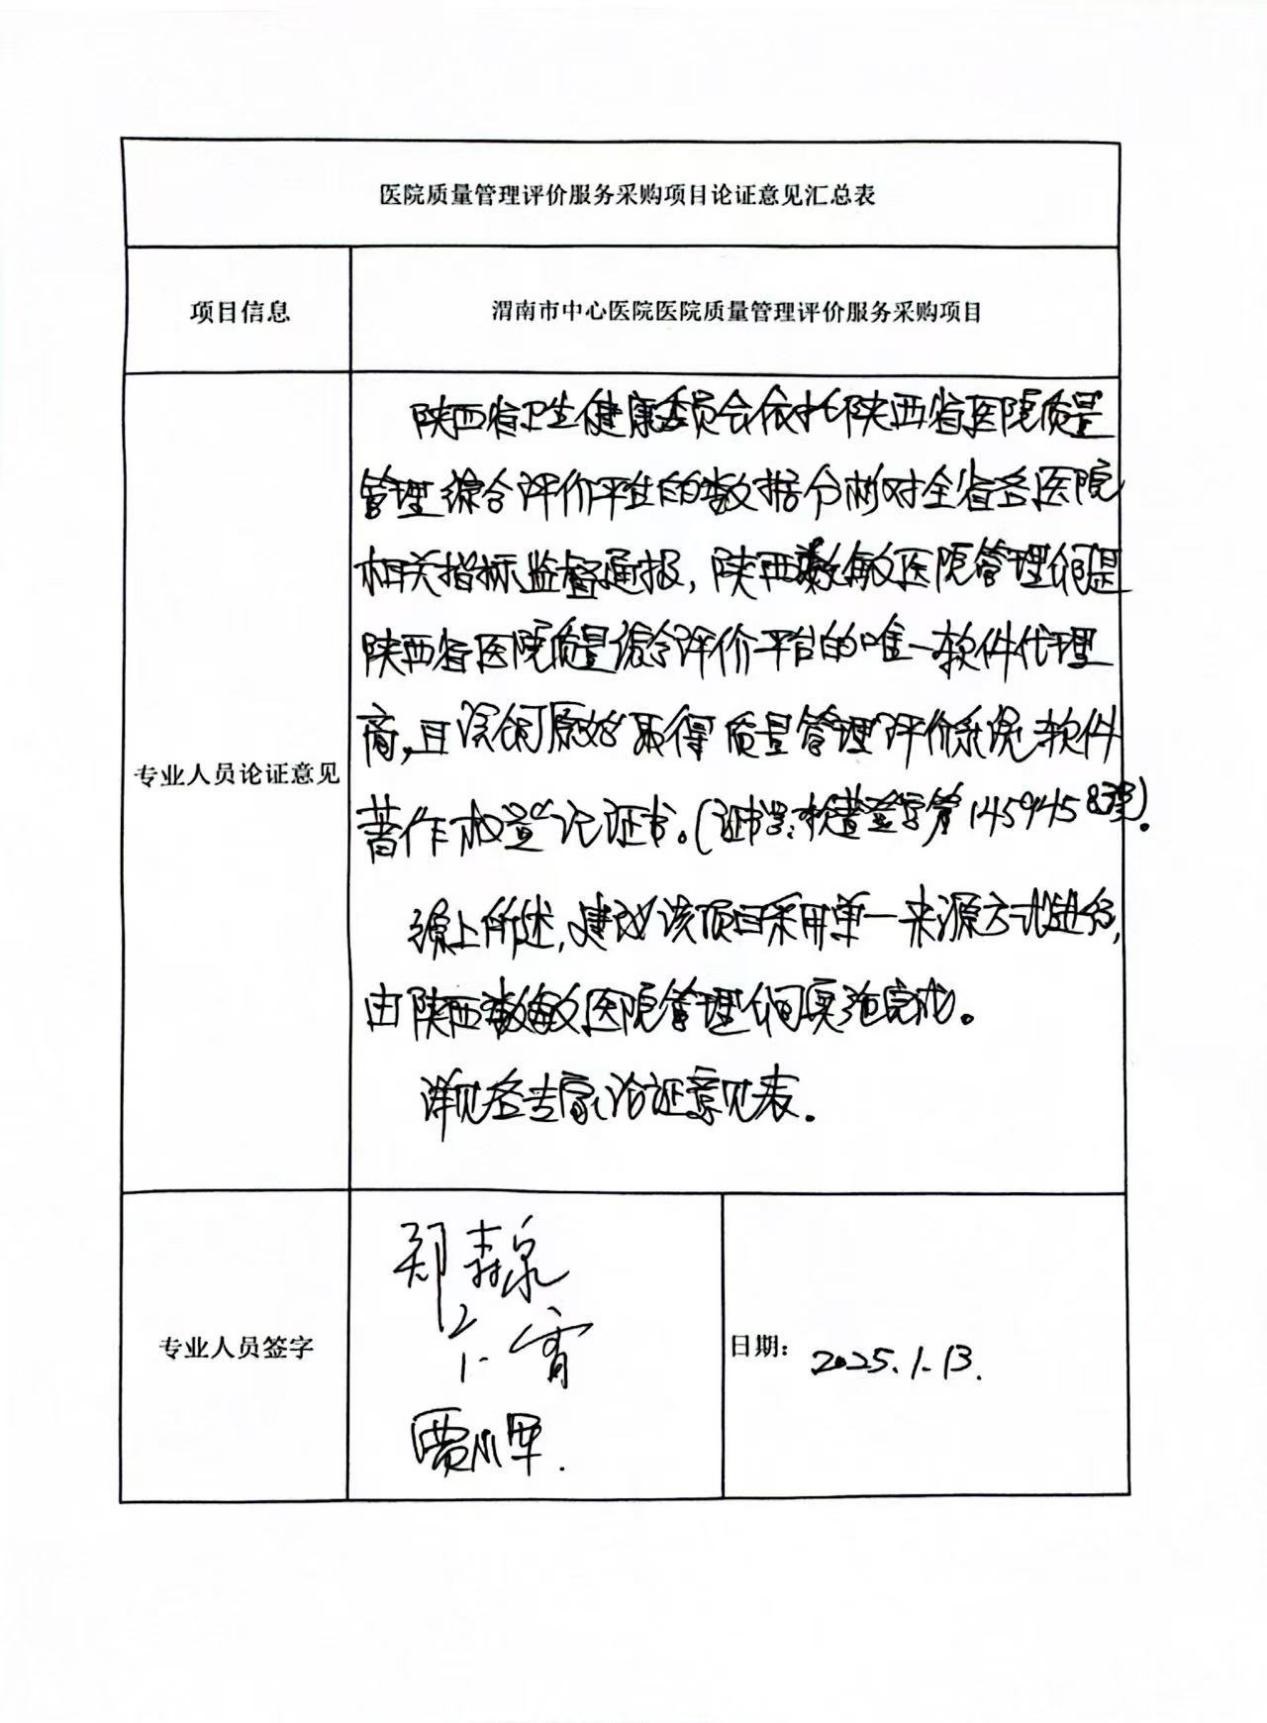 医院质量管理评价服务采购项目论证意见汇总表
项目信息
渭南市中心医院医院质量管理评价服务采购项目
专业人员论证意见
陕西省卫生健康委员会依托陕西省医院质量
管理综合评价平台的数据分析对全省各医院
相关指标监督通报，陕西数敏医院管理公司是
陕西省医院质量综合评价平台的唯一软件代理
商，且该公司原始取得质量管理评价系统软件
著作权登记证书。(证书号：软著登字第14594583号)．
综上所述，建议该项目采用单一来源方式进行，
由陕西数敏医院管理公司实施完成。
详见各专家论证意见表．
专业人员签字
郑森泉
贾小军．
日期：
2025.1.13.